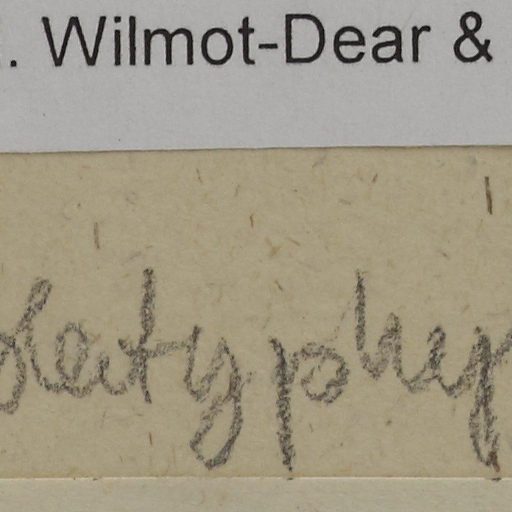 . Wilmot-Dear &
platyphy